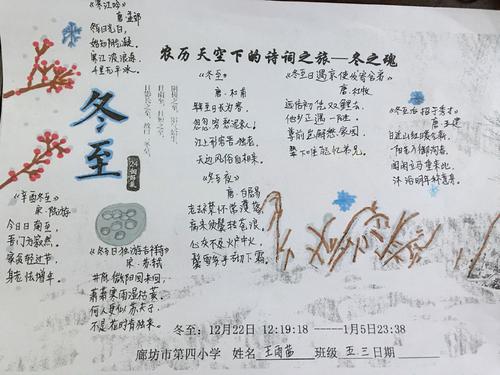 《寒江吟》
唐·孟郊
冬日之日,
农历天空下的诗词之旅—冬之魂
冬至
《冬至》
唐·杜甫
年年至日长为客,
忽忽穷愁泥杀人。
江上形容吾独老,
天边风俗自相亲。
《冬至日遇京使发寄舍弟》
唐·杜牧
远信初凭双鲤去,
他乡正遇一阳生。
尊前岂解愁家国,
辇下唯能忆弟兄。
《冬至后招于秀才》
唐·王建
日近山红暖欲新,
一阳先入御沟春。
闻闲立马重来此,
沐浴明年称意身。
《冬至夜》
唐·白居易
老去襟怀常濩落,
病来须鬓转苍浪。
心灰不及炉中火,
鬓雪多于砌下霜。
《辛酉冬至》
宋·陆游
今日日南至,
吾门方寂然。
家贫轻过节,
身老怯增年。
《冬至日独游吉祥寺》
宋·苏轼
井底微阳回未回,
萧萧寒雨湿枯荄。
何人更似苏夫子,
不是花时肯独来。
冬至:12月22日 12:19:18 -----1月5日23:38
廊坊市第四小学 姓名 班级 五.三 日期